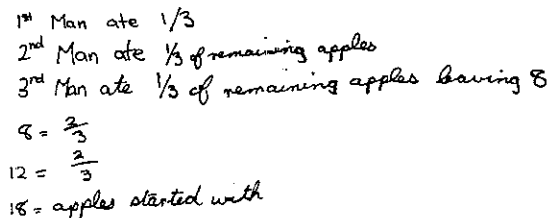 1st Man ate 1/3
2nd Man ate 1/3 of remaining apples
3rd Man ate 1/3 of remaining apples leaving 8
8 = 2/3
12 = 2/3
18 = apples started with